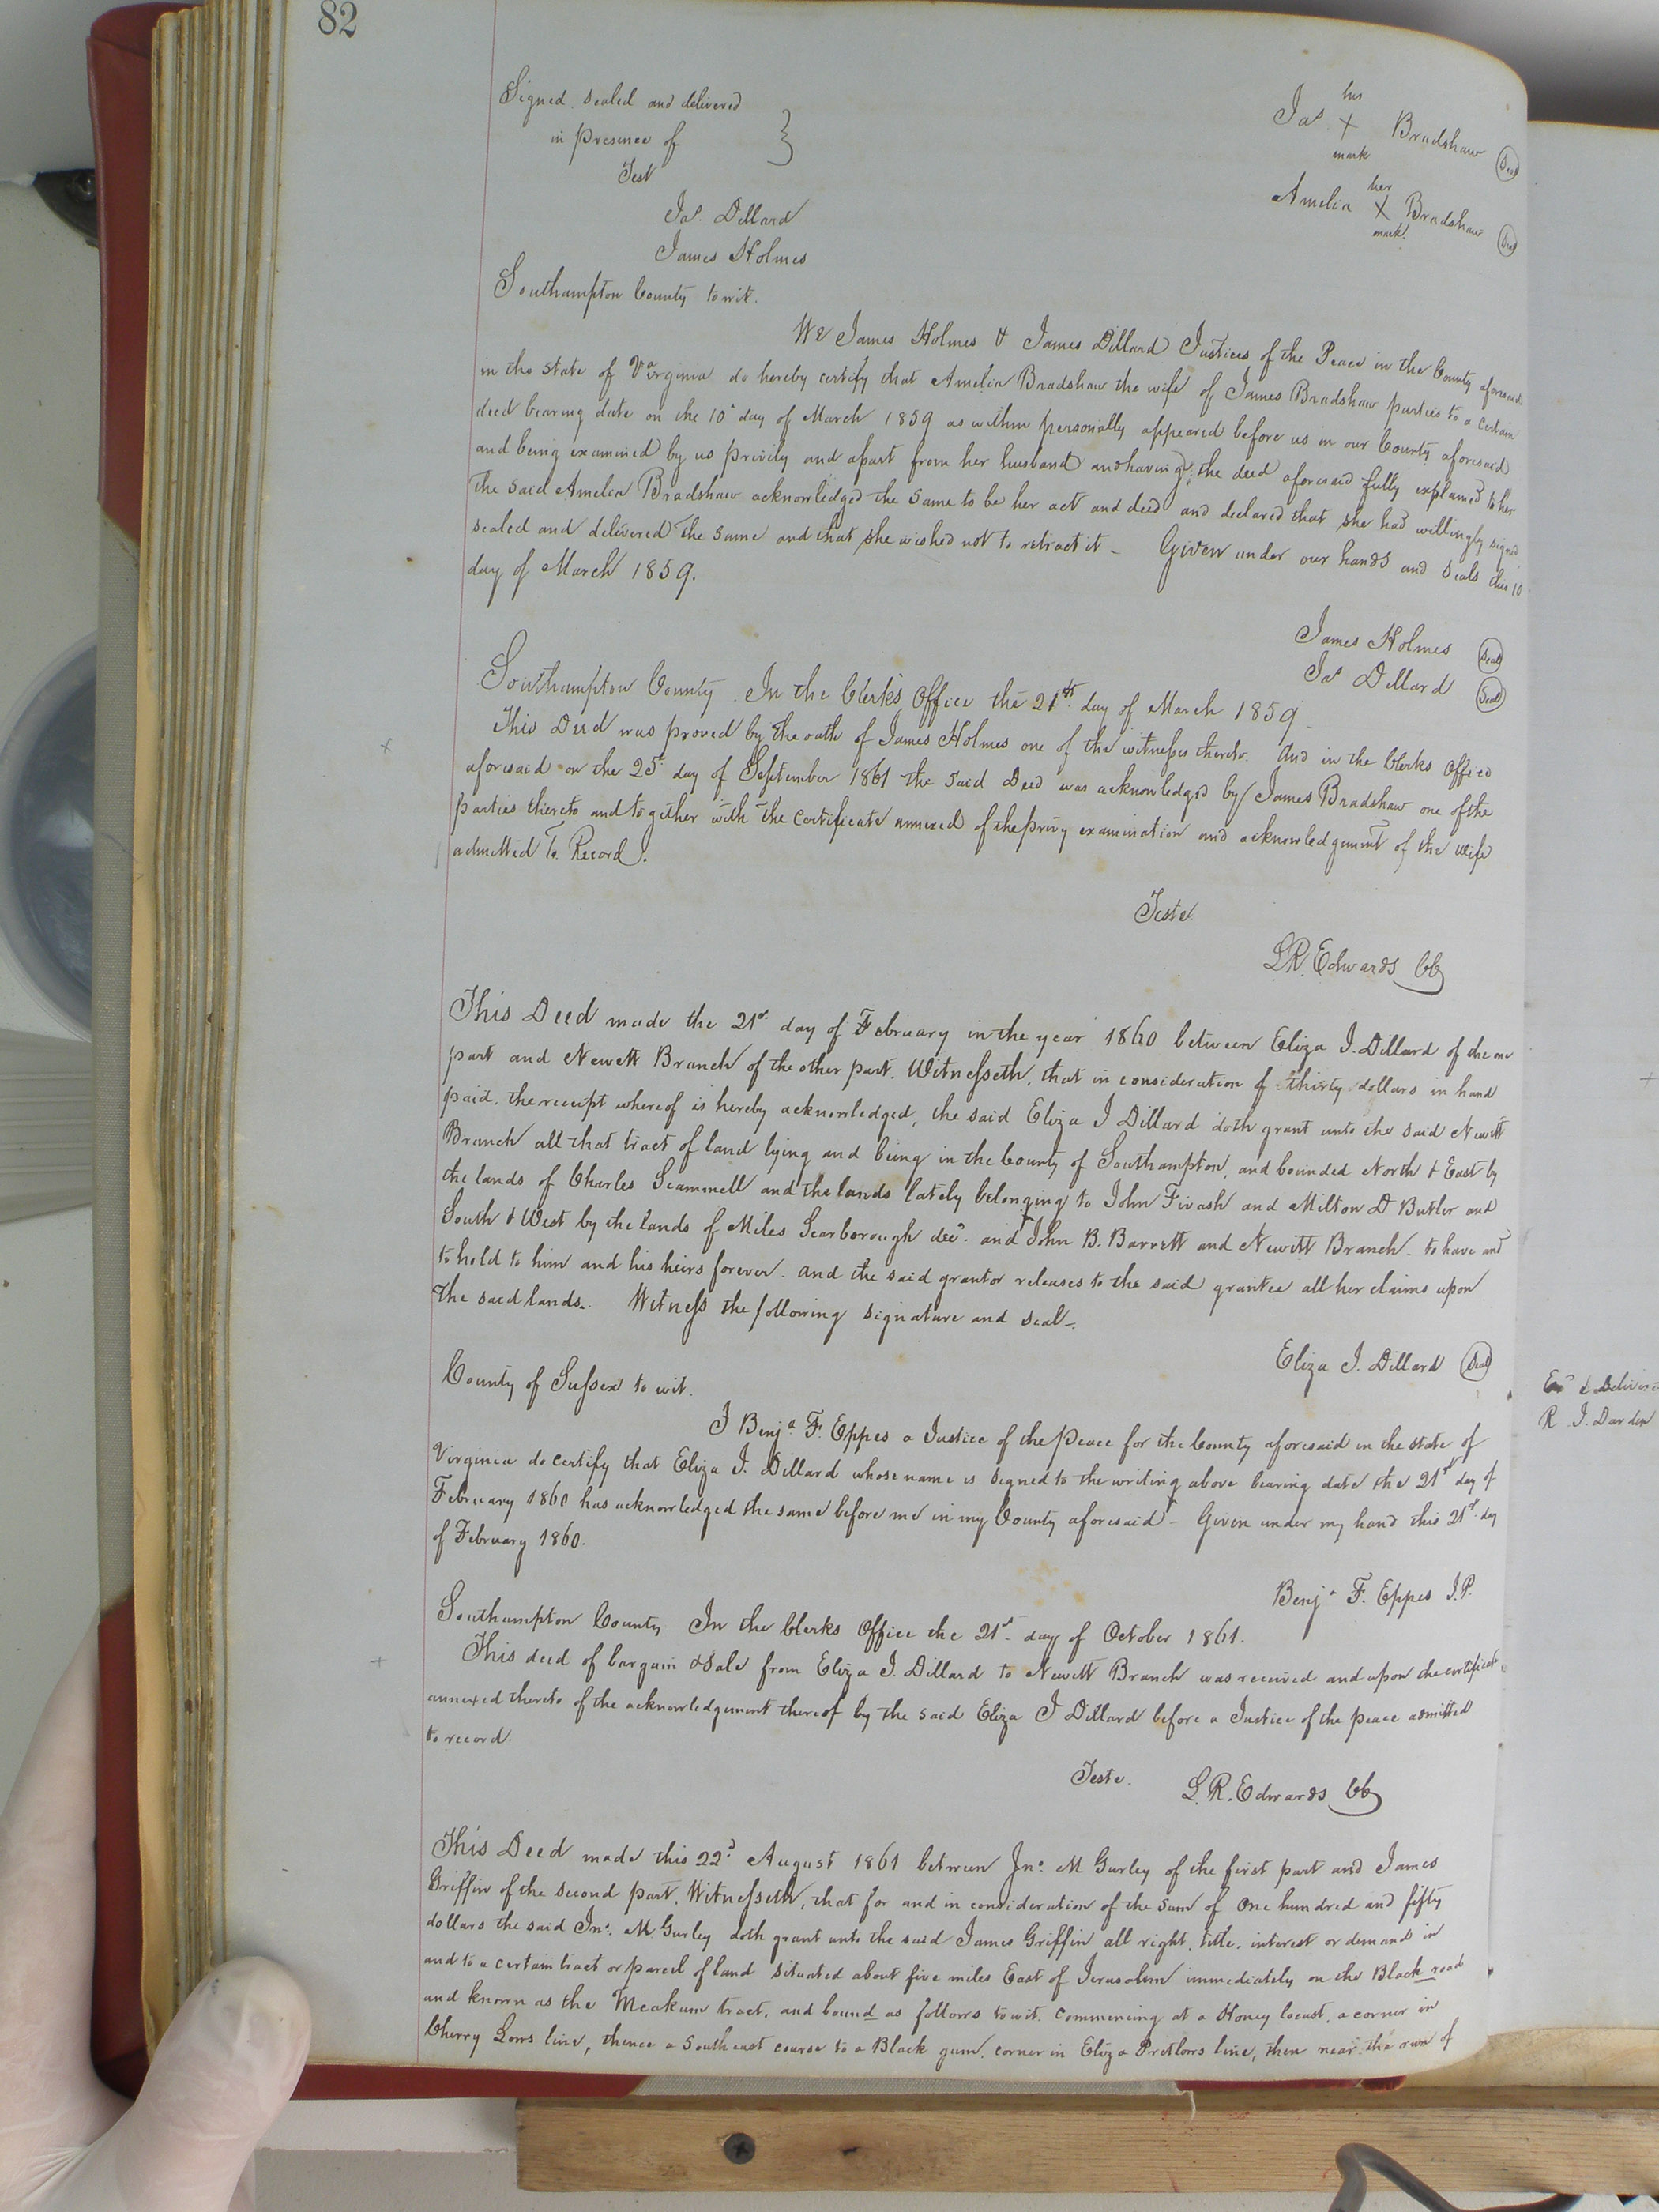 82
Signed Sealed and delivered
in presence of
Test
Jas. Dillard
James Holmes
his
Jas X Bradshaw Seal
mark
her
Amelia X Bradshaw Seal
mark
Southampton County to wit.
We James Holmes & James Dillard Justices of the Peace in the County aforesaid
in the State of Virginia do hereby certify that Amelia Bradshaw the wife of James Bradshaw parties to a certain
deed bearing date on the 10th day of March 1859 as within personally appeared before us in our County aforesaid
and being examined by us privily and apart from her husband and having the deed aforesaid fully explained to her
The said Amelia Bradshaw acknowledged the same to be her act and deed and declared that she had willingly signed
sealed and delivered the same and that she wished not to retract it – Given under our hands and seals this 10
day of March 1859.
James Holmes Seal
Jas Dillard Seal
Southampton County. In the Clerk's Office the 21st day of March 1859
This Deed was proved by the oath of James Holmes one of the witnesses thereto. And in the Clerks Office
aforesaid on the 25 day of September 1861 the said Deed was acknowledged by James Bradshaw one of the
parties thereto and together with the Certificate annexed of the privy examination and acknowledgement of the wife
admitted To Record.
Teste
L.R. Edwards CC
This Deed made the 21st day of February in the year 1860 between Eliza J. Dillard of the one
part and Newett Branch of the other part. Witnesseth, that in consideration of thirty dollars in hand
paid. the receipt whereof is hereby acknowledged, the said Eliza J Dillard doth grant unto the said Newitt
Branch all that tract of land lying and being in the County of Southampton, and bounded North & East by
the lands of Charles Scammell and the lands lately belonging to John Fivash and Milton D Butler and
South & West by the lands of Miles Scarborough decd. and John B. Barrett and Newitt Branch – to have and
to hold to him and his heirs forever. and the said grantor releases to the said grantee all her claims upon
the said lands. Witness the following signature and seal –
Eliza J. Dillard Seal
County of Sussex to wit.
I Benja. F. Eppes a Justice of the Peace for the County aforesaid in the state of
Virginia do certify that Eliza J. Dillard whose name is signed to the writing above bearing date the 21st day of
February 1860 has acknowledged the same before me in my County aforesaid – Given under my hand this 21st day
of February 1860.
Benja F. Eppes J.P.
Southampton County In the Clerks Office the 21st day of October 1861.
This deed of bargain & Sale from Eliza J. Dillard to Newitt Branch was received and upon the certificate
annexed thereto of the acknowledgement thereof by the said Eliza J Dillard before a Justice of the peace admitted
to record.
Teste. L.R. Edwards CC
This Deed made this 22d August 1861 between Jno. M Gurley of the first part and James
Griffin of the second part, Witnesseth, that for and in consideration of the sum of One hundred and fifty
dollars the said Jno. M. Gurley doth grant unto the said James Griffin all right, title, interest or demand in
and to a certain tract or parcel of land situated about five miles East of Jerusalem immediately on the Black road
and known as the Meakum tract, and bound as follows to wit. Commencing at a Honey locust, a corner in
Cherry Lows line, thence a South east course to a Black gum, corner in Eliza Pretlows line, then near the run of
& Deliver
R. J. Darden